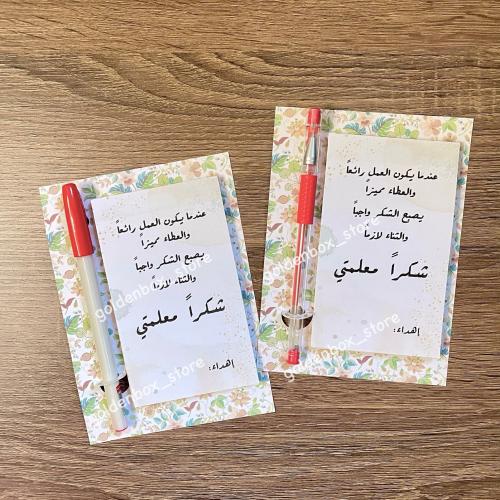 عندما يكون العمل رائعاً
والعطاء مميزاً
يصبح الشكر واجباً
والثناء لازماً
شكراً معلمتي
إهداء:
goldenbox_store
goldenbox_store
عندما يكون العمل رائعاً
والعطاء مميزاً
يصبح الشكر واجباً
والثناء لازماً
شكراً معلمتي
إهداء:
goldenbox_store
goldenbox_store